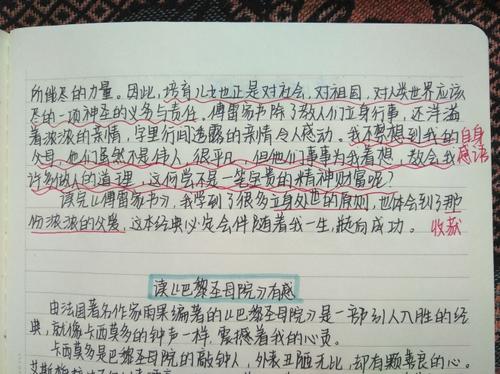 所能尽的力量。因此,培育儿女也正是对社会,对祖国,对人类世界应该
尽的一项神圣的义务与责任。傅雷家书除了教人们立身行事,还洋溢
着浓浓的亲情,字里行间透露的亲情令人感动。我不禁想到我的 自身
父母,他们虽然不是伟人,很平凡,但他们事事为我着想,教会我 感语
许多做人的道理,这何尝不是一笔宝贵的精神财富呢?
读完《傅雷家书》,我学到了很多立身处世的原则,也体会到了那
份浓浓的父爱,这本经典必定会伴随着我一生,驶向成功。 收获
读《巴黎圣母院》有感
由法国著名作家雨果编著的《巴黎圣母院》是一部引人入胜的经
典,就像卡西莫多的钟声一样,震撼着我的心灵。
卡西莫多是巴黎圣母院的敲钟人,外表丑陋无比,却有颗善良的心。